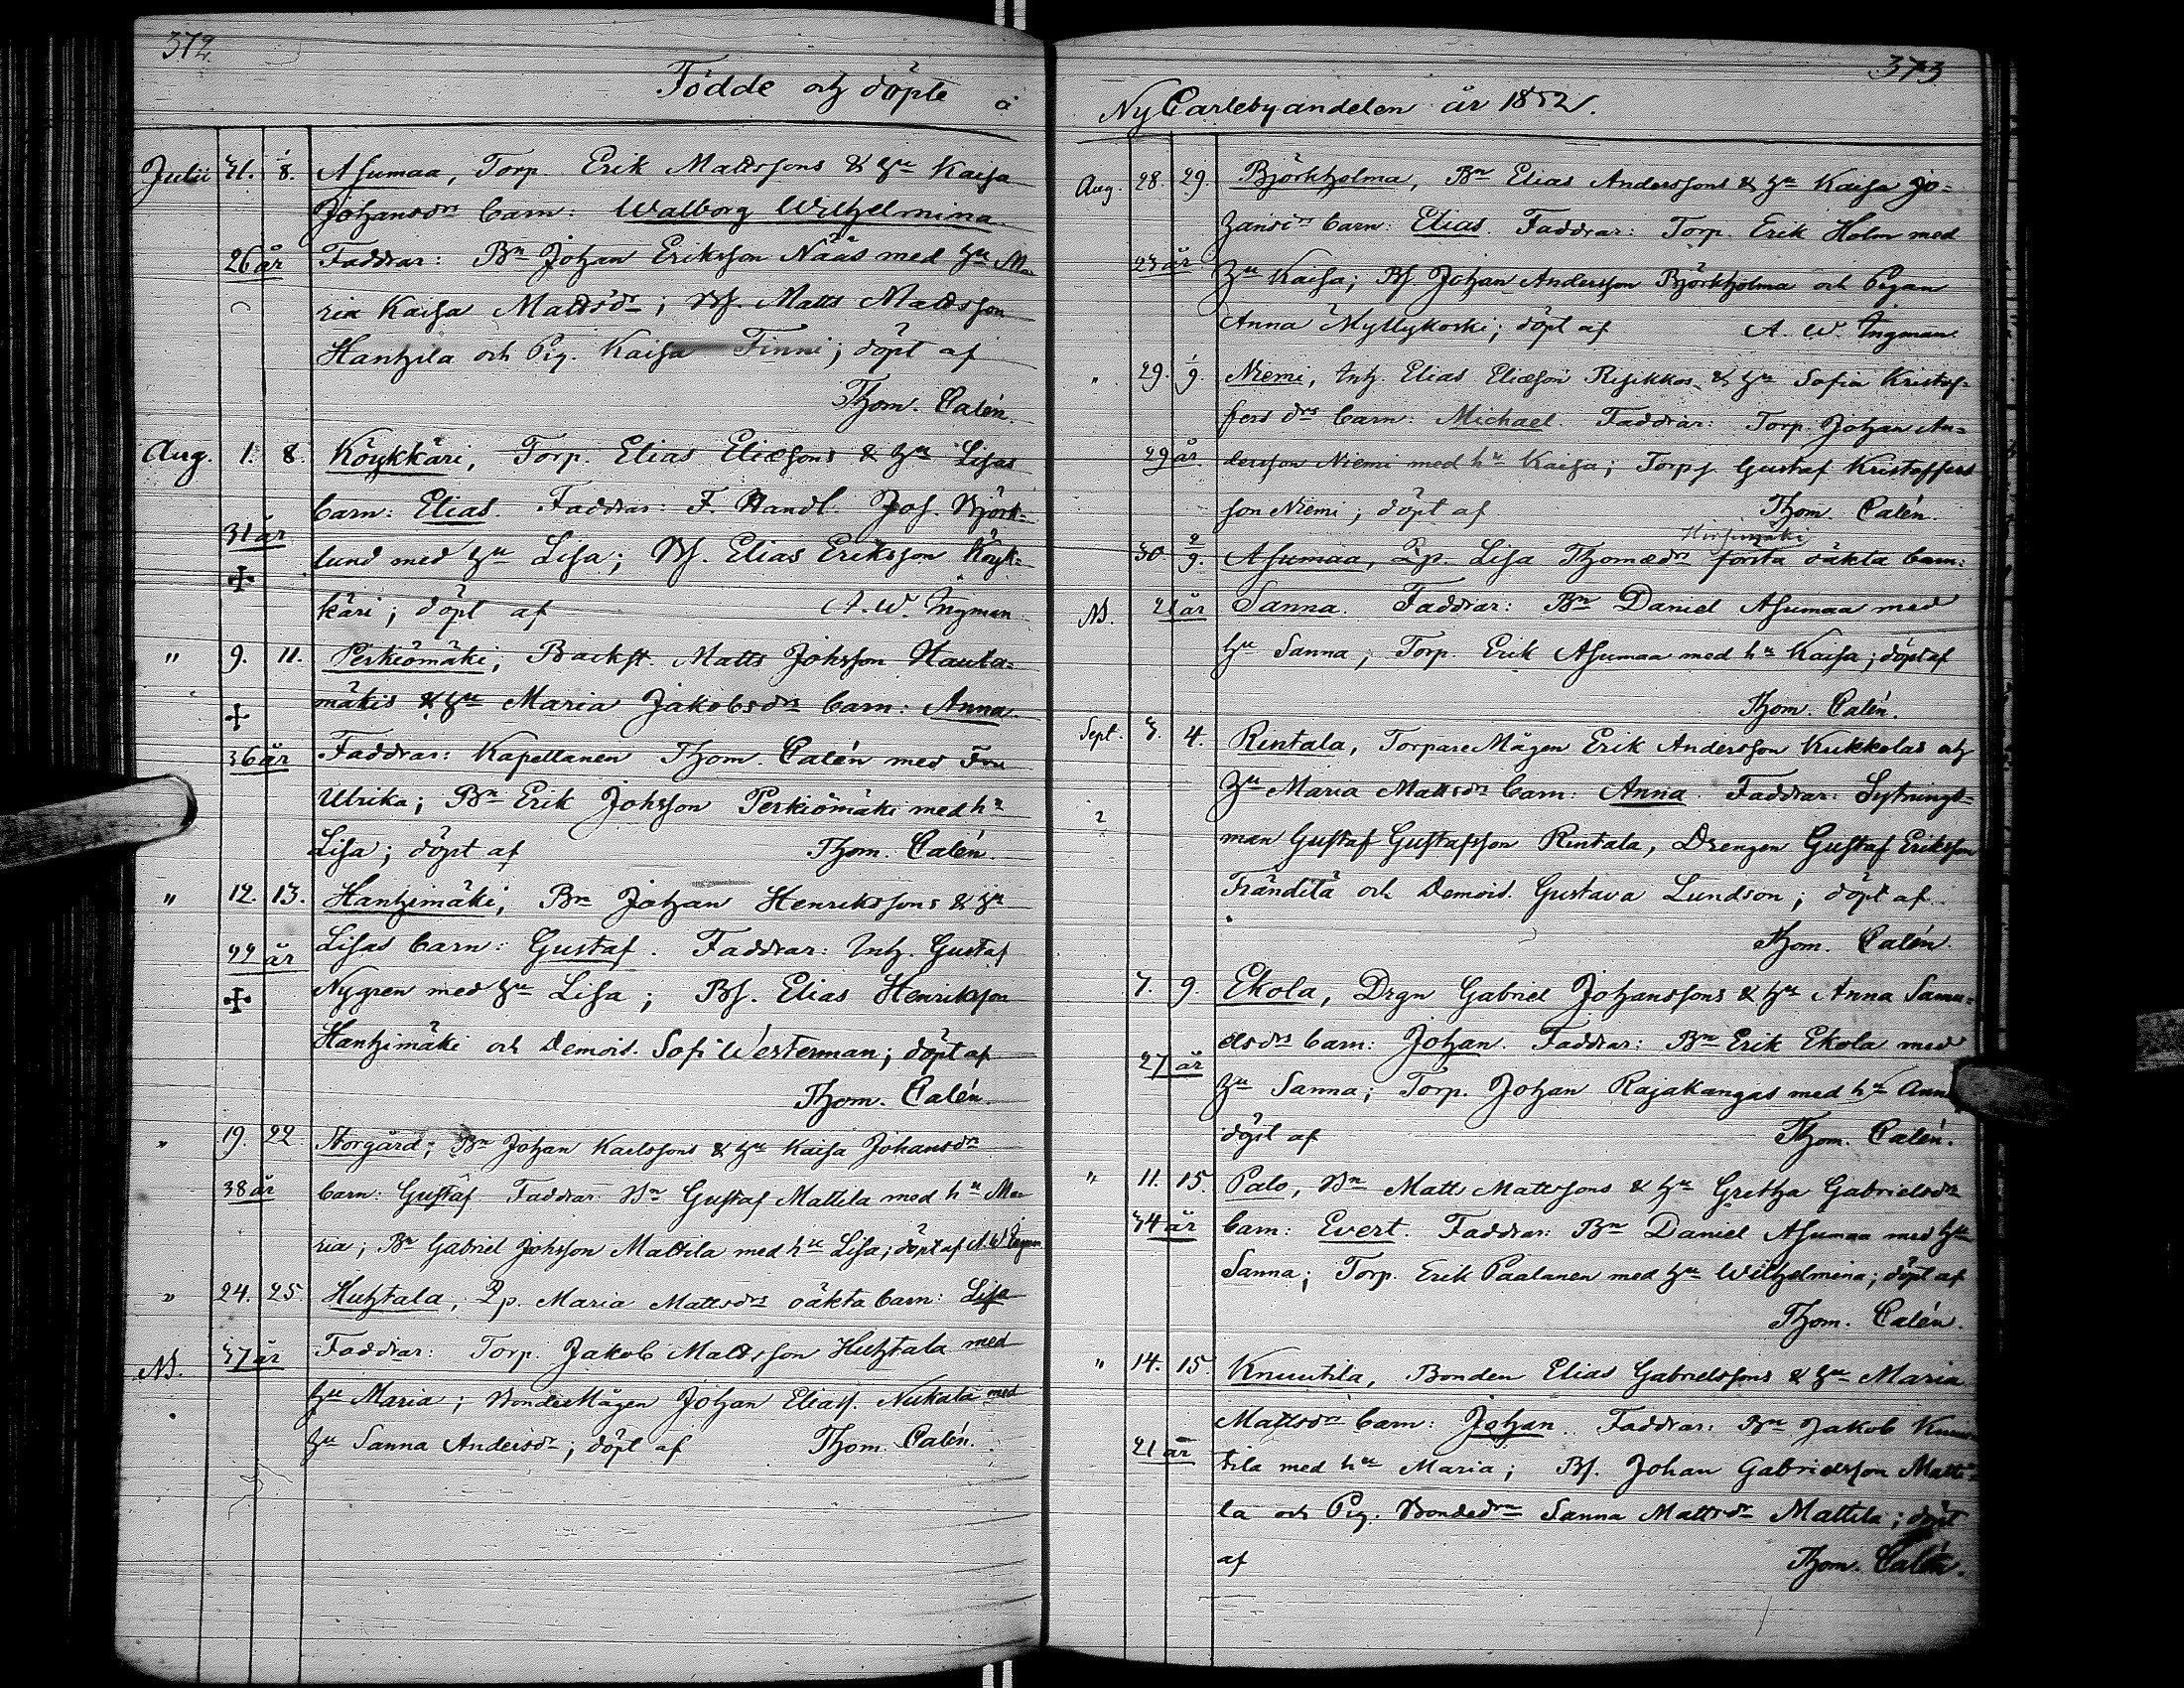 372.
Födde och döpte å
Julii 31. 1/8. Asumaa, Torp. Erik Mattssons & hu Kaisa
Johansdrs barn: Walborg Wilhelmina.
26 år Faddrar: Bn Johan Eriksson Nääs med hu Ma
ria Kaisa Mattsdr; Bs. Matts Mattsson
Hantzila och Pig. Kaisa Finni; döpt af
Thom. Calén.
Aug. 1. 8. Köykkäri, Torp. Elias Eliæsons & hu Lisas
31 år barn: Elias. Faddrar: F. Handl. Jos. Björk=
lund med hu Lisa; Bs. Elias Eriksson Köyk=
käri; döpt af A. W. Ingman
" 9. 11. Perkiömäki, Backst. Matts Johsson Hauta=
mäkis & hu Maria Jakobsdrs barn: Anna.
36 år Faddrar: Kapellanen Thom. Calén med Fru
Ulrika; Bn Erik Johsson Perkiömäki med hu
Lisa; döpt af Thom. Calén.
" 12. 13. Hantzimäki, Bn Johan Henrikssons & hu
22 år Lisas barn: Gustaf. Faddrar: Inh. Gustaf
Nygren med hu Lisa; Bs. Elias Henriksson
Hantzimäki och Demois. Sofi Westerman; döpt af
Thom. Calén.
" 19. 22. Storgård; Bn Johan Karlssons & hu Kaisa Johansdrs
38 år barn: Gustaf Faddrar: Bn Gustaf Mattila med hu Ma
ria; Bn Gabriel Johsson Mattila med hu Lisa; döpt af A. W. Ingman
" 24. 25. Huhtala, Qp. Maria Mattsdrs oäkta barn: Lisa
NB. 37 år Faddrar: Torp. Jakob Mattsson Huhtala med
hu Maria; BondeMågen Johan Eliass. Nukala med
hu Sanna Andersdr; döpt af Thom. Calén.
373
NyCarlebyandelen år 1852.
Aug. 28. 29. Björkholma, Bn Elias Anderssons & hu Kaisa Jo=
hansdrs barn: Elias. Faddrar: Torp. Erik Holm med
23 år hu Kaisa; Bs. Johan Andersson Björkholma och Pigan
Anna Myllykoski; döpt af A. W. Ingman
" 29. 1/9. Niemi, Inh. Elias Eliæson Risikkos & hu Sofia Kristof=
fersdrs barn: Michael. Faddrar: Torp. Johan An=
29 år dersson Niemi med hu Kaisa; Torps. Gustaf Kristoffers
son Niemi; döpt af Thom. Calén.
Hirsimäki
30. 2/9. Asumaa, Qp. Lisa Thomædrs första oäkta barn:
NB. 21 år Sanna. Faddrar: Bn Daniel Asumaa med
hu Sanna; Torp. Erik Asumaa med hu Kaisa; döpt af
Thom. Calén.
Sept. 3. 4. Rintala, TorpareMågen Erik Andersson Kukkolas och
hu Maria Mattsdrs barn: Anna. Faddrar: Sytnings=
? man Gustaf Gustafsson Rintala, Drengen Gustaf Eriksson
Frändilä och Demois. Gustava Lundson; döpt af
Thom. Calén.
7. 9. Ekola, Drgn Gabriel Johanssons & hu Anna Samu=
elsdrs barn: Johan. Faddrar: Bn Erik Ekola med
27 år hu Sanna; Torp. Johan Rajakangas med hu Anna
döpt af Thom. Calén.
" 11. 15. Palo, Bn Matt Mattssons & hu Gretha Gabrielsdrs
34 år barn: Evert. Faddrar: Bn Daniel Asumaa med hu
Sanna; Torp. Erik Paalanen med hu Wilhelmina; döpt af
Thom. Calén.
" 14. 15. Knuutila, Bonden Elias Gabrielssons & hu Maria
Mattsdrs barn: Johan. Faddrar: Bn Jakob Knuu
21 år tila med hu Maria; Bs. Johan Gabrielsson Matti=
la och Pig. Bondedrn Sanna Mattsdr Mattila; döpt
af Thom. Calén.